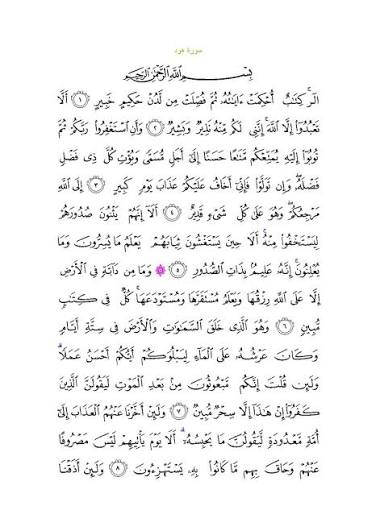 سورة هود
بِسْمِ ٱللَّهِ ٱلرَّحْمَٰنِ ٱلرَّحِيمِ
الٓر ۚ كِتَٰبٌ أُحْكِمَتْ ءَايَٰتُهُۥ ثُمَّ فُصِّلَتْ مِن لَّدُنْ حَكِيمٍ خَبِيرٍ ١ أَلَّا
تَعْبُدُوٓا۟ إِلَّا ٱللَّهَ ۚ إِنَّنِى لَكُم مِّنْهُ نَذِيرٌ وَبَشِيرٌ ٢ وَأَنِ ٱسْتَغْفِرُوا۟ رَبَّكُمْ ثُمَّ
تُوبُوٓا۟ إِلَيْهِ يُمَتِّعْكُم مَّتَٰعًا حَسَنًا إِلَىٰٓ أَجَلٍ مُّسَمًّى وَيُؤْتِ كُلَّ ذِى فَضْلٍ
فَضْلَهُۥ ۖ وَإِن تَوَلَّوْا۟ فَإِنِّىٓ أَخَافُ عَلَيْكُمْ عَذَابَ يَوْمٍ كَبِيرٍ ٣ إِلَى ٱللَّهِ
مَرْجِعُكُمْ ۖ وَهُوَ عَلَىٰ كُلِّ شَىْءٍ قَدِيرٌ ٤ أَلَآ إِنَّهُمْ يَثْنُونَ صُدُورَهُمْ
لِيَسْتَخْفُوا۟ مِنْهُ ۚ أَلَا حِينَ يَسْتَغْشُونَ ثِيَابَهُمْ يَعْلَمُ مَا يُسِرُّونَ وَمَا
يُعْلِنُونَ ۚ إِنَّهُۥ عَلِيمٌۢ بِذَاتِ ٱلصُّدُورِ ٥ ۞ وَمَا مِن دَآبَّةٍ فِى ٱلْأَرْضِ
إِلَّا عَلَى ٱللَّهِ رِزْقُهَا وَيَعْلَمُ مُسْتَقَرَّهَا وَمُسْتَوْدَعَهَا ۚ كُلٌّ فِى كِتَٰبٍ
مُّبِينٍ ٦ وَهُوَ ٱلَّذِى خَلَقَ ٱلسَّمَٰوَٰتِ وَٱلْأَرْضَ فِى سِتَّةِ أَيَّامٍ
وَكَانَ عَرْشُهُۥ عَلَى ٱلْمَآءِ لِيَبْلُوَكُمْ أَيُّكُمْ أَحْسَنُ عَمَلًا ۗ
وَلَئِن قُلْتَ إِنَّكُم مَّبْعُوثُونَ مِنۢ بَعْدِ ٱلْمَوْتِ لَيَقُولَنَّ ٱلَّذِينَ
كَفَرُوٓا۟ إِنْ هَٰذَآ إِلَّا سِحْرٌ مُّبِينٌ ٧ وَلَئِنْ أَخَّرْنَا عَنْهُمُ ٱلْعَذَابَ إِلَىٰٓ
أُمَّةٍ مَّعْدُودَةٍ لَّيَقُولُنَّ مَا يَحْبِسُهُۥٓ ۗ أَلَا يَوْمَ يَأْتِيهِمْ لَيْسَ مَصْرُوفًا
عَنْهُمْ وَحَاقَ بِهِم مَّا كَانُوا۟ بِهِۦ يَسْتَهْزِءُونَ ٨ وَلَئِنْ أَذَقْنَا